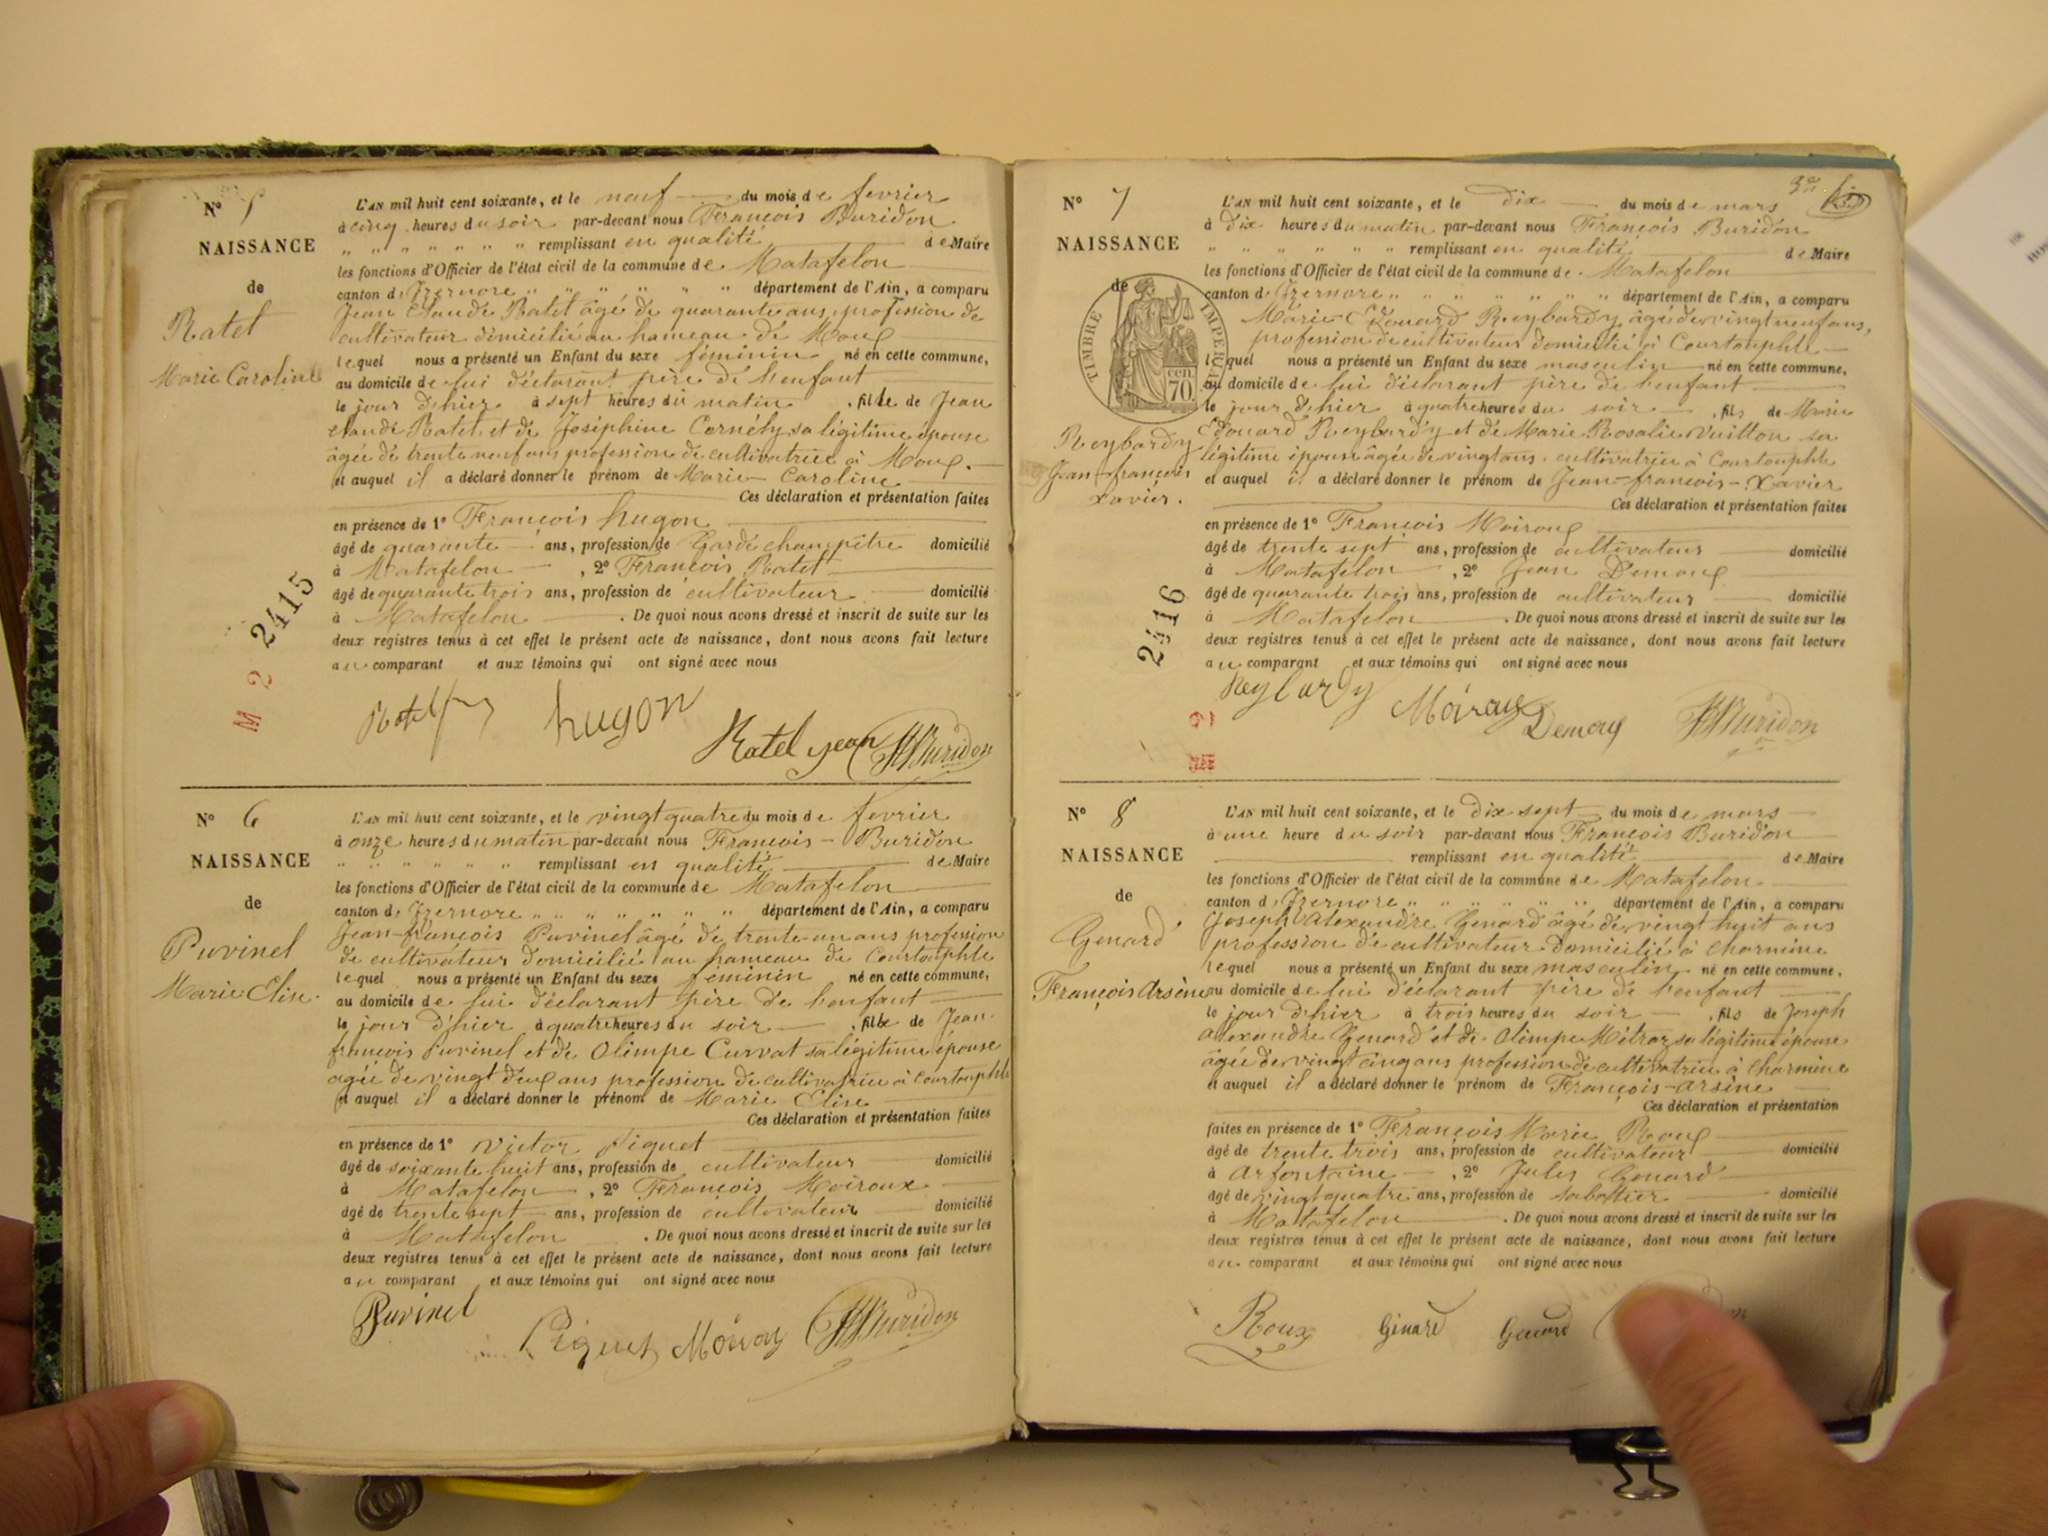 N° 5
NAISSANCE
de
Ratel
Marie Caroline
L'AN mil huit cent soixante, et le neuf du mois de fevrier
à cinq heures du soir par-devant nous François Buridon
remplissant en qualité de Maire
les fonctions d'Officier de l'état civil de la commune de Matafelon
canton d'Izernore département de l'Ain, a comparu
Jean Claude Ratel âgé de quarante ans, profession de
cultivateur domicilié au hameau de Moux
lequel nous a présenté un Enfant du sexe féminin né en cette commune,
au domicile de lui déclarant père de l'enfant
le jour d'hier à sept heures du matin, fille de Jean
claude Ratel et de Joséphine Cornély sa légitime épouse
âgée de trente neuf ans profession de cultivatrice à Moux.
et auquel il a déclaré donner le prénom de Marie Caroline
Ces déclaration et présentation faites
en présence de 1° François hugon
âgé de quarante ans, profession de Garde champêtre domicilié
à Matafelon, 2° François Ratel
âgé de quarante trois ans, profession de cultivateur domicilié
à Matafelon. De quoi nous avons dressé et inscrit de suite sur les
deux registres tenus à cet effet le présent acte de naissance, dont nous avons fait lecture
au comparant et aux témoins qui ont signé avec nous
M 2 2415
Ratel hugon Ratel jean Buridon
N° 6
NAISSANCE
de
Puvinel
Marie Elise.
L'AN mil huit cent soixante, et le vingt quatre du mois de fevrier
à onze heures du matin par-devant nous François - Buridon
remplissant en qualité de Maire
les fonctions d'Officier de l'état civil de la commune de Matafelon
canton d'Izernore département de l'Ain, a comparu
Jean-françois Puvinel âgé de trente-un ans profession
de cultivateur domicilié au hameau de Courtouphle
lequel nous a présenté un Enfant du sexe féminin né en cette commune,
au domicile de lui déclarant père de l'enfant
le jour d'hier à quatre heures du soir, fille de Jean-
françois Puvinel et de Olimpe Curvat sa légitime épouse
âgée de vingt deux ans profession de cultivatrice à Courtouphle
et auquel il a déclaré donner le prénom de Marie Elise
Ces déclaration et présentation faites
en présence de 1° Victor Piquet
âgé de soixante huit ans, profession de cultivateur domicilié
à Matafelon, 2° François Moiroux
âgé de trente sept ans, profession de cultivateur domicilié
à Matafelon. De quoi nous avons dressé et inscrit de suite sur les
deux registres tenus à cet effet le présent acte de naissance, dont nous avons fait lecture
au comparant et aux témoins qui ont signé avec nous
Puvinel Piquet Moiroux Buridon
3
N° 7
NAISSANCE
de
TIMBRE IMPERIAL
70 cen
Reybardy
Jean-françois
Xavier.
L'AN mil huit cent soixante, et le dix du mois de mars
à dix heures du matin par-devant nous François Buridon
remplissant en qualité de Maire
les fonctions d'Officier de l'état civil de la commune de Matafelon
canton d'Izernore département de l'Ain, a comparu
Marie Edouard Reybardy âgé de vingt neuf ans,
profession de cultivateur domicilié à Courtouphle
lequel nous a présenté un Enfant du sexe masculin né en cette commune,
au domicile de lui déclarant père de l'enfant
le jour d'hier à quatre heures du soir, fils de Marie
Edouard Reybardy et de Marie Rosalie Vuitton sa
légitime épouse âgée de vingt ans cultivatrice à Courtouphle
et auquel il a déclaré donner le prénom de Jean-françois-Xavier
Ces déclaration et présentation faites
en présence de 1° François Moiroux
âgé de trente sept ans, profession de cultivateur domicilié
à Matafelon, 2° Jean Demoux
âgé de quarante trois ans, profession de cultivateur domicilié
à Matafelon. De quoi nous avons dressé et inscrit de suite sur les
deux registres tenus à cet effet le présent acte de naissance, dont nous avons fait lecture
au comparant et aux témoins qui ont signé avec nous
2416
Reybardy Moiroux Demoux Buridon
N° 8
NAISSANCE
de
Genard
François Arsène
L'AN mil huit cent soixante, et le dix sept du mois de mars
à une heure du soir par-devant nous François Buridon
remplissant en qualité de Maire
les fonctions d'Officier de l'état civil de la commune de Matafelon
canton d'Izernore département de l'Ain, a comparu
Joseph Alexandre Genard âgé de vingt huit ans
profession de cultivateur domicilié à Charmine
lequel nous a présenté un Enfant du sexe masculin né en cette commune,
au domicile de lui déclarant père de l'enfant
le jour d'hier à trois heures du soir, fils de Joseph
Alexandre Genard et de Olimpe Mitroz sa légitime épouse
âgée de vingt cinq ans profession de cultivatrice à Charmine
et auquel il a déclaré donner le prénom de François-arsène
Ces déclaration et présentation
faites en présence de 1° François Marie Roux
âgé de trente trois ans, profession de cultivateur domicilié
à Arfontaine, 2° Jules Genard
âgé de vingt quatre ans, profession de sabottier domicilié
à Matafelon. De quoi nous avons dressé et inscrit de suite sur les
deux registres tenus à cet effet le présent acte de naissance, dont nous avons fait lecture
au comparant et aux témoins qui ont signé avec nous
Roux Genard Genard